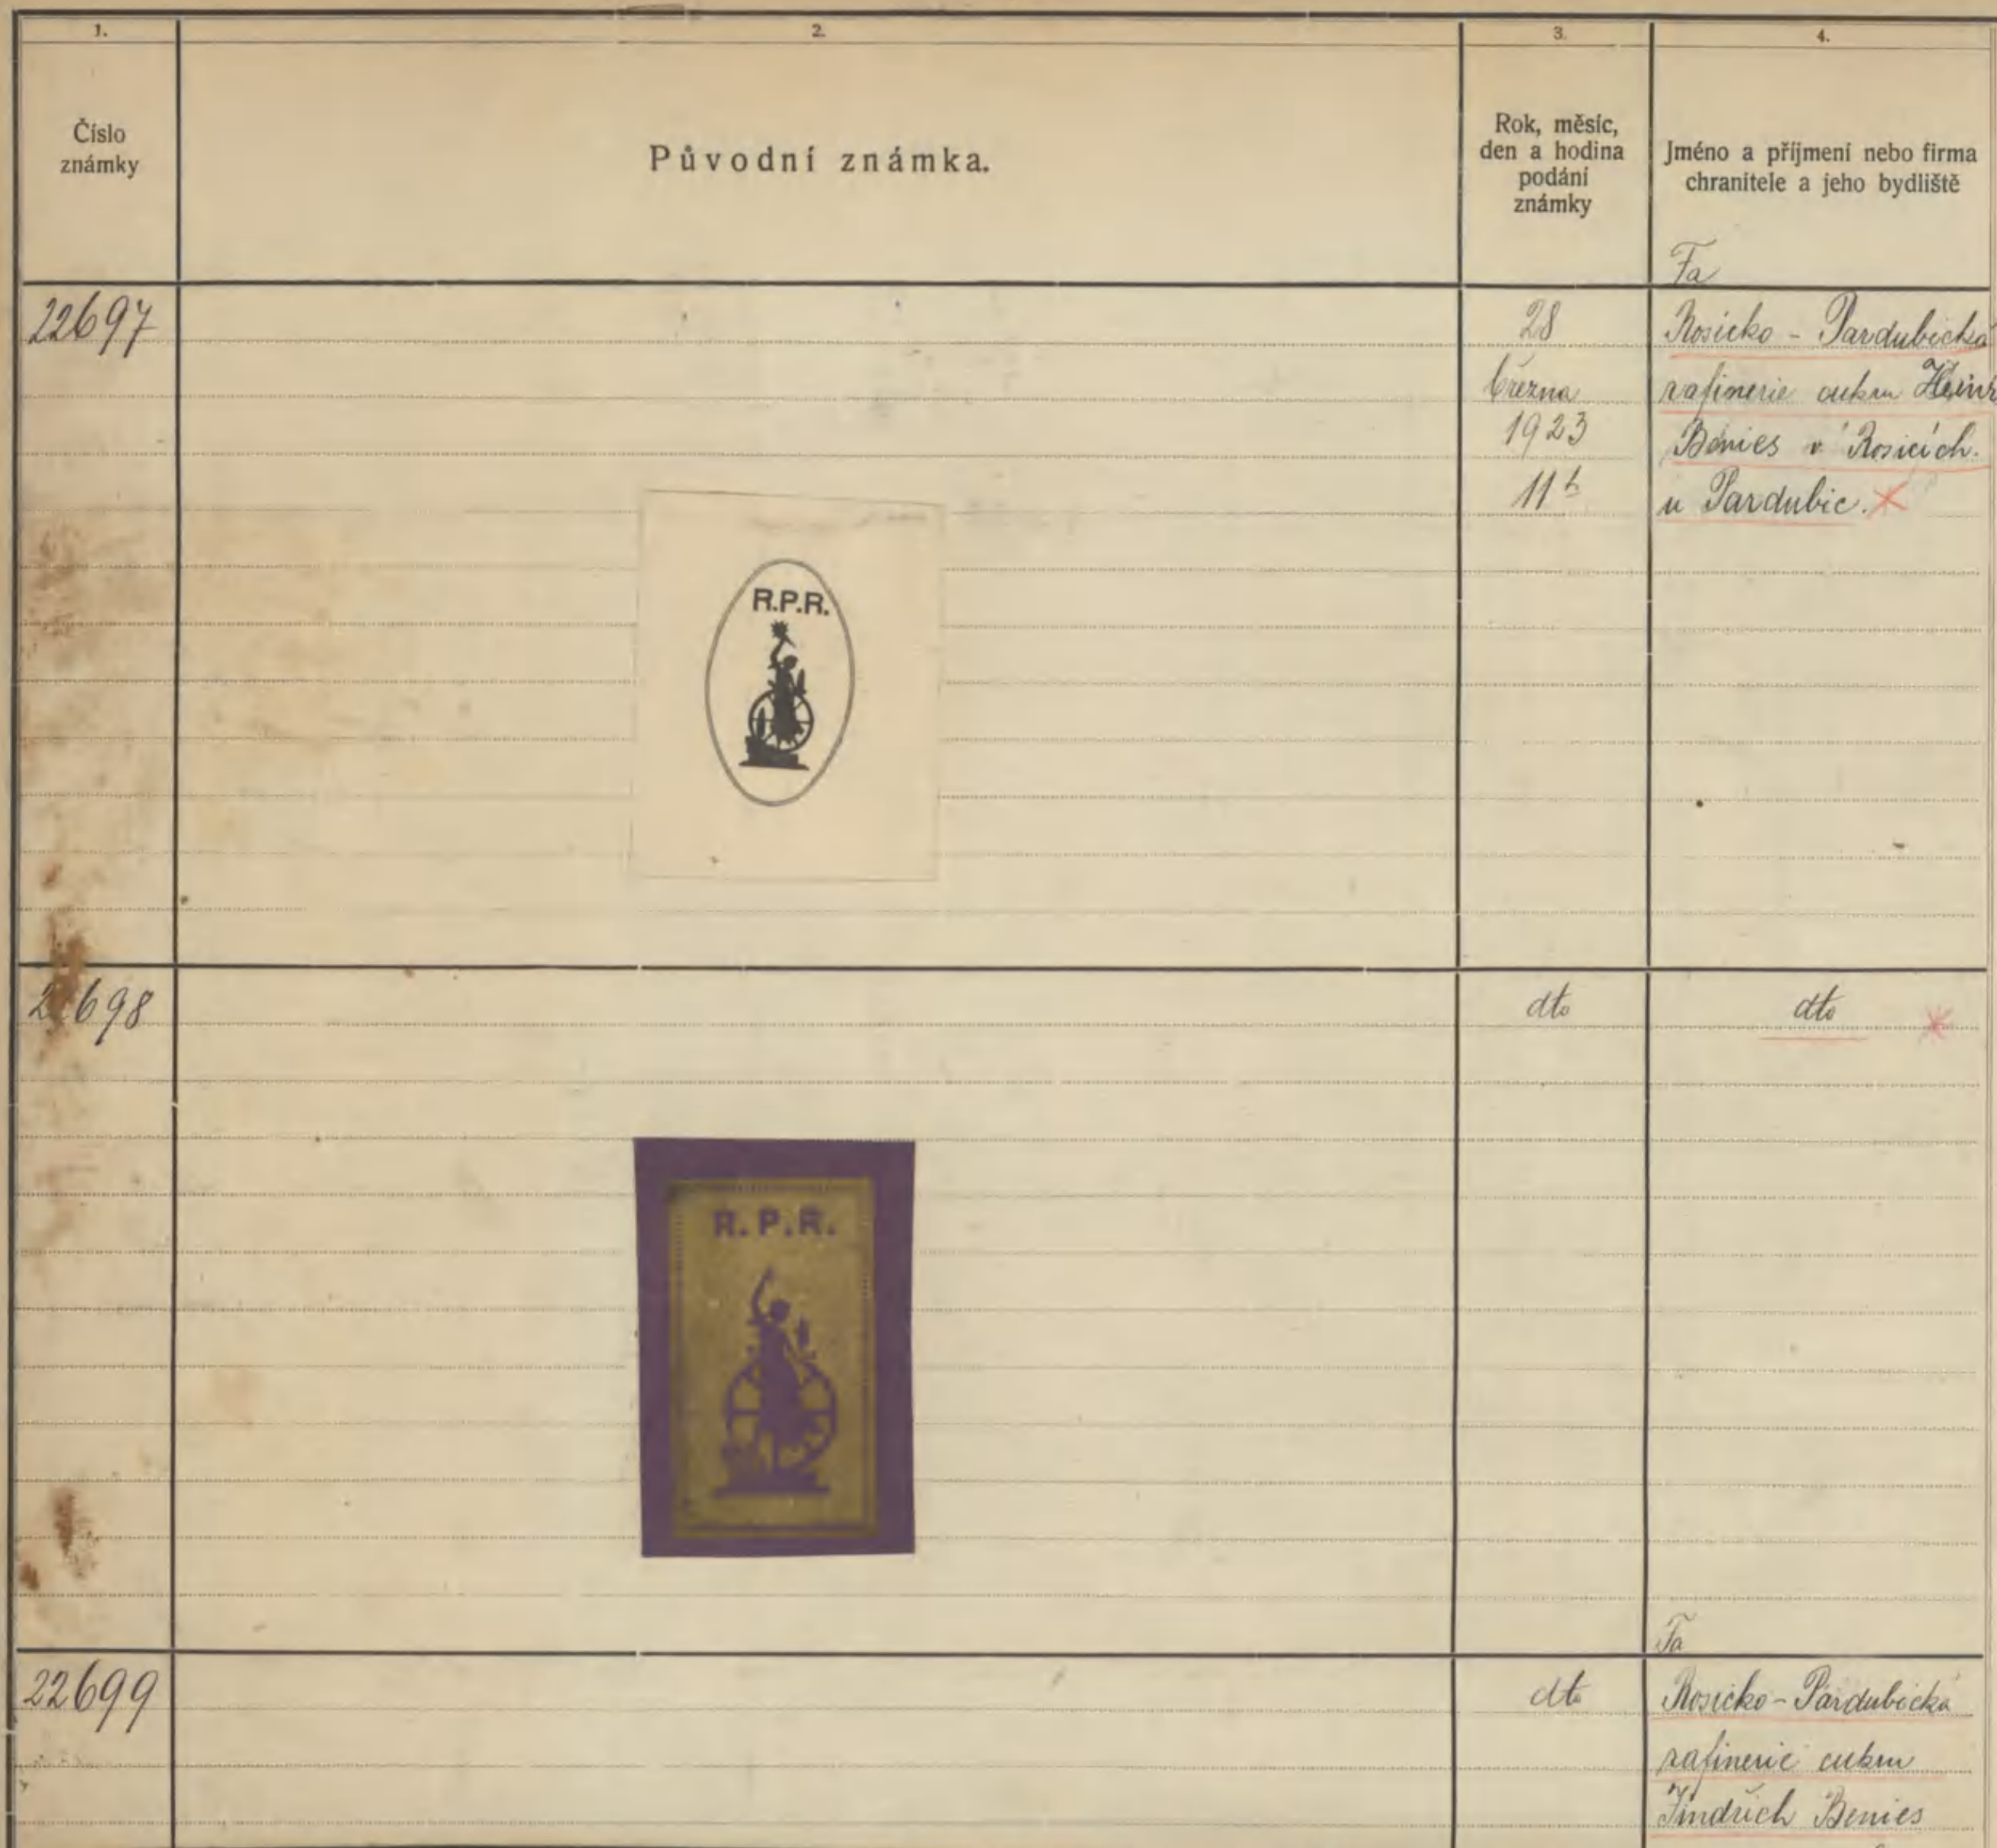 1.
2.
3.
4.
Číslo
známky
Původní známka.
Rok, měsíc,
den a hodina
podání
známky
Jméno a příjmení nebo firma
chranitele a jeho bydliště
Fa
22697
28
března
1923
11 h
Rosicko - Pardubická
rafinerie cukru Heinr
Benies v Rosicích
u Pardubic.
R.P.R.
22698
dto
dto
R. P. R.
Fa
22699
dto
Rosicko - Pardubická
rafinerie cukru
Jindřich Benies